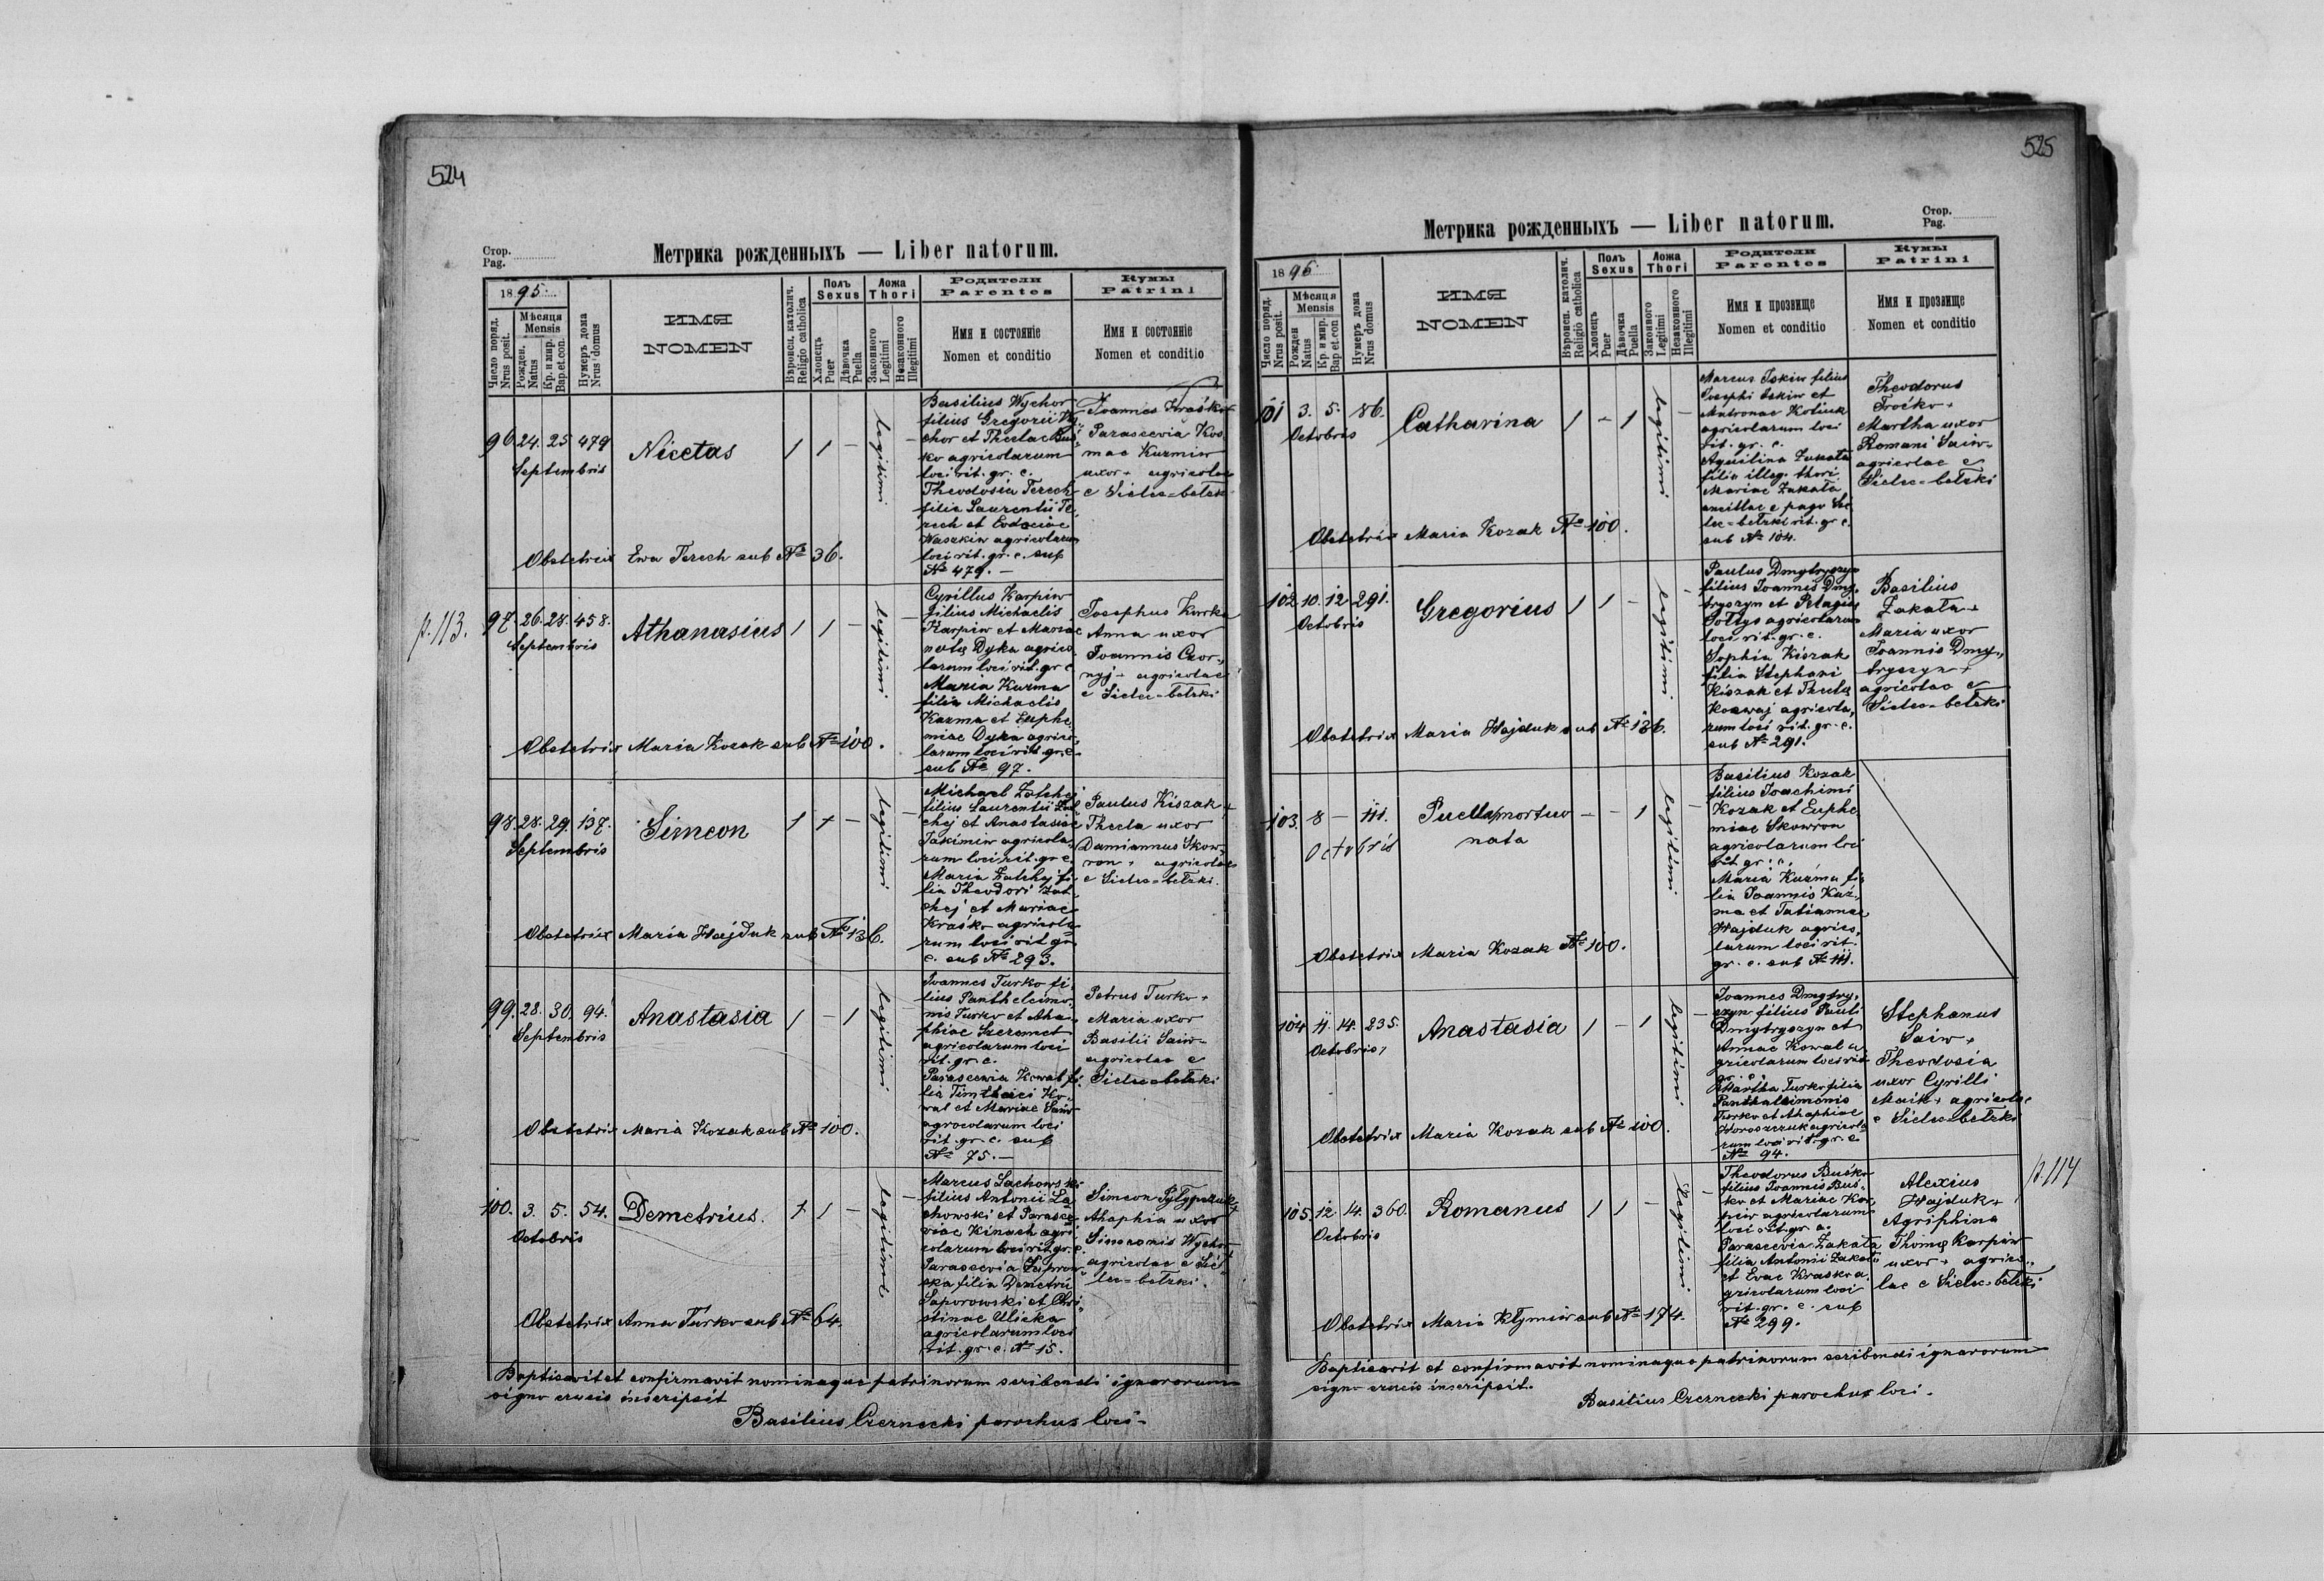 524
Метрика рожденныхъ — Liber natorum.
Стор.
Pag.
1895.
Число поряд.
Nrus posit.
Мѣсяця
Mensis
Рожден.
Natus
Кр. и мир.
Bap.et.con.
Нумеръ дома
Nrus domus
ИМЯ
NOMEN
Вѣроисп. католич.
Religio catholica
Полъ
Sexus
Хлопецъ
Puer
Дѣвочка
Puella
Ложа
Thori
Законного
Legitimi
Незаконного
Illegitimi
Родители
Parentes
Имя и состояніе
Nomen et conditio
Кумы
Patrini
Имя и состояніе
Nomen et conditio
96 24. 25 479
Septembris
Nicetas
1 1 –
legitimi
Basilius Wychor
filius Gregorii Wy
chor et Theclae Bus
ko agricolarum
loci rit. gr. c.
Theodosia Terech
filia Laurentii Te
rech et Eudociae
Waszkiw agricolarum
loci rit. gr. c. sub
№ 479. –
Joannes Kraśko
Parascevia Kos
mae Kuzmiw
uxor + agricolae
e Sielec=bełzki
Obstetrix Ewa Terech sub № 36.
p. 113.
97 26. 28. 458.
Septembris
Athanasius
1 1 –
legitimi
Cyrillus Karpiw
filius Michaelis
Karpiw et Mariae
natae Dyka agrico
larum loci rit. gr c
Maria Kuzma
filia Michaelis
Kuzma et Euphe
miae Dyka agrico
larum loci rit. gr. c.
sub № 97.
Josephus Kurka
Anna uxor
Joannis Czor„
nyj + agricolae
e Sielec=bełzki
Obstetrix Maria Kozak sub № 100.
98. 28. 29. 137.
Septembris
Simeon
1 + –
legitimi
Michael Zatchej
filius Laurentii Zat
chej et Anastasiae
Jakimiw agricola„
rum loci rit. gr c.
Maria Zatchej fi
lia Theodori Zat
chej et Mariae
Kraśko agricola
rum loci rit gr.
c. sub № 293.
Paulus Kiszak +
Thecla uxor
Damiannus Skow„
ron + agricolae
e Sielec=bełzki.
Obstetrix Maria Hajduk sub № 136.
99. 28. 30. 94.
Septembris
Anastasia
1 – 1
legitimi
Joannes Turko fi
lius Pantheleimo
nis Turko et Aha
phiae Szeremet
agricolarum loci
rit. gr. c.
Parascewia Kowal fi
lia Timthaei Ko„
wal et Mariae Saiw
agrocolarum loci
rit. gr. c. sub
№ 75. –
Petrus Turko +
Maria uxor
Basilii Saiw
agricolae e
Sielec=bełzki
Obstetrix Maria Kozak sub № 100.
100. 3. 5. 54.
Octobris
Demetrius.
+ 1 –
legitimi
Marcus Lachowski
filius Antonii La
chowski et Parasce
viae Kinach agri
colarum loci rit gr. c.
Parascevia Zaporow
ska filia Demetrii
Saporowski et Chri„
stinae Ulicka
agricolarum loci
rit. gr. c. № 15.
Simeon Pyłypczuk
Ahaphia uxor
Simeonis Wychor
agricolae e Sie
lec=bełzki.
Obstetrix Anna Turko sub № 64.
Baptisavit et confirmavit nominaque patrinorum scribendi ignararum
signo crucis inscripsit
Basilius Czernecki parochus loci –
525
Метрика рожденныхъ — Liber natorum.
Стор.
Pag.
1895.
Число поряд.
Nrus posit.
Мѣсяця
Mensis
Рожден
Natus
Кр. и мир.
Bap et.con
Нумеръ дома
Nrus domus
ИМЯ
NOMEN
Вѣроисп. католич.
Religio catholica
Полъ
Sexus
Хлопецъ
Puer
Дѣвочка
Puella
Ложа
Thori
Законного
Legitimi
Незаконного
Illegitimi
Родители
Parentes
Имя и прозвище
Nomen et conditio
Кумы
Patrini
Имя и прозвище
Nomen et conditio
101 3. 5. 86.
Octobris
Catharina
1 – 1
legitimi
Marcus Iskiw filius
Josephi Iskiw et
Matronae Kotiuk
agricolarum loci
rit. gr. c.
Aquilina Zakała
filia illeg. thori
Mariae Zakała
ancillae e pago Sie
lec=bełzki rit. gr c.
sub № 104.
Theodorus
Troćko +
Martha uxor
Romani Saiw
agricolae e
Sielec=bełzki
Obstetrix Maria Kozak № 100.
102 10. 12 291.
Octobris
Gregorius
1 1 –
legitimi
Paulus Dmytryszyn
filius Joannis Dmy„
tryszyn et Pelagiae
Sołtys agricolarum
loci rit. gr. c.
Sophia Kiszak
filia Stephani
Kiszak et Theclae
Kozwaj agricola„
rum loci rit. gr. c.
sub № 291.
Basilius
Zakała +
Maria uxor
Joannis Dmy„
tryszyn +
agricolae e
Sielec=bełzki
Obstetrix Maria Hajduk sub № 136.
103. 8 – 111.
Octobris
Puella mortuo
nata
– – 1
legitimi
Basilius Kozak
filius Joachimi
Kozak et Euphe
miae Skowron
agricolarum loci
rit. gr. c.
Maria Kuźma fi
lia Joannis Kuź„
ma et Tatiannae
Hajduk agrico„
larum loci rit.
gr. c. sub № 111.
Obstetrix Maria Kozak № 100.
104 11. 14. 235.
Octobris,
Anastasia
1 – 1
legitimi
Joannes Dmytry„
szyn filius Pauli
Dmytryszyn et
Annae Kowal a
gricolarum loci rit
gr. c.
Martha Turko filia
Panthaleimonis
Turko et Ahaphiae
Woroszczuk agricola
rum loci rit. gr. c
№ 94.
Stephanus
Saiw +
Theodosia
uxor Cyrilli
Maik + agricolae
e Sielec=bełzki
Obstetrix Maria Kozak sub № 100.
105. 12. 14. 360.
Octobris
Romanus
1 1 –
legitimi
Theodorus Buśko
filius Joannis Buś„
ko et Mariae Kar
piw agricolarum
loci rit. gr. c.
Parascevia Zakała
filia Antonii Zakała
et Evae Krasko a
gricolarum loci
rit. gr. c. sub
№ 299.
Alexius
Hajduk +
Agriphina
Thomae Karpiw
uxor + agrico„
lae e Sielec=bełzki
p. 114
Obstetrix Maria Kłymiw sub № 174.
Baptisavit et confirmavit nominaque patrinorum scribendi ignararum
signo crucis inscripsit.
Basilius Czernecki parochus loci.